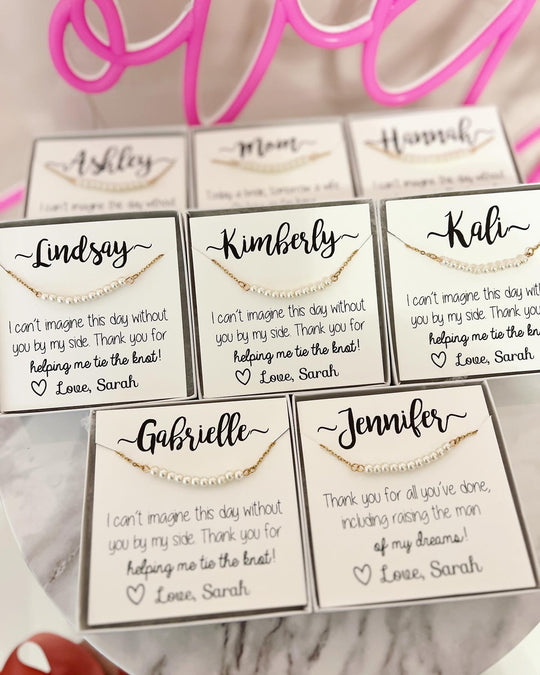 Love
~Ashley~
I can't imagine this day without
~Mom~
Today a bride, tomorrow a wife,
~Hannah~
I can't imagine the day without
~Lindsay~
I can't imagine this day without
you by my side. Thank you for
helping me tie the knot!
♡ Love, Sarah
~Kimberly~
I can't imagine this day without
you by my side. Thank you for
helping me tie the knot!
♡ Love, Sarah
~Kali~
I can't imagine this day
you by my side. Thank you
helping me tie the kno
♡ Love, Sarah
~Gabrielle~
I can't imagine this day without
you by my side. Thank you for
helping me tie the knot!
♡ Love, Sarah
~Jennifer~
Thank you for all you've done,
including raising the man
of my dreams!
♡ Love, Sarah